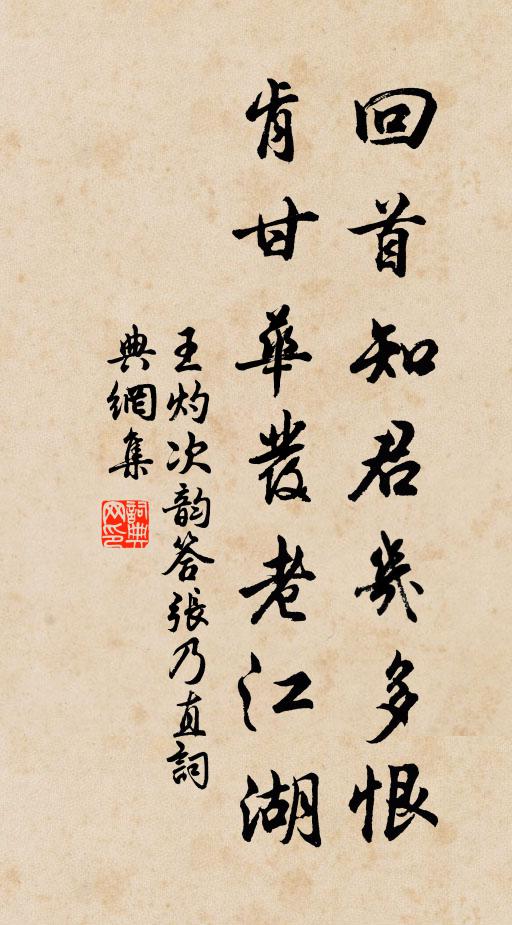 回首知君幾多恨
肯甘華發老江湖
王灼次韵答張乃直詞
典網集
詞典
网印